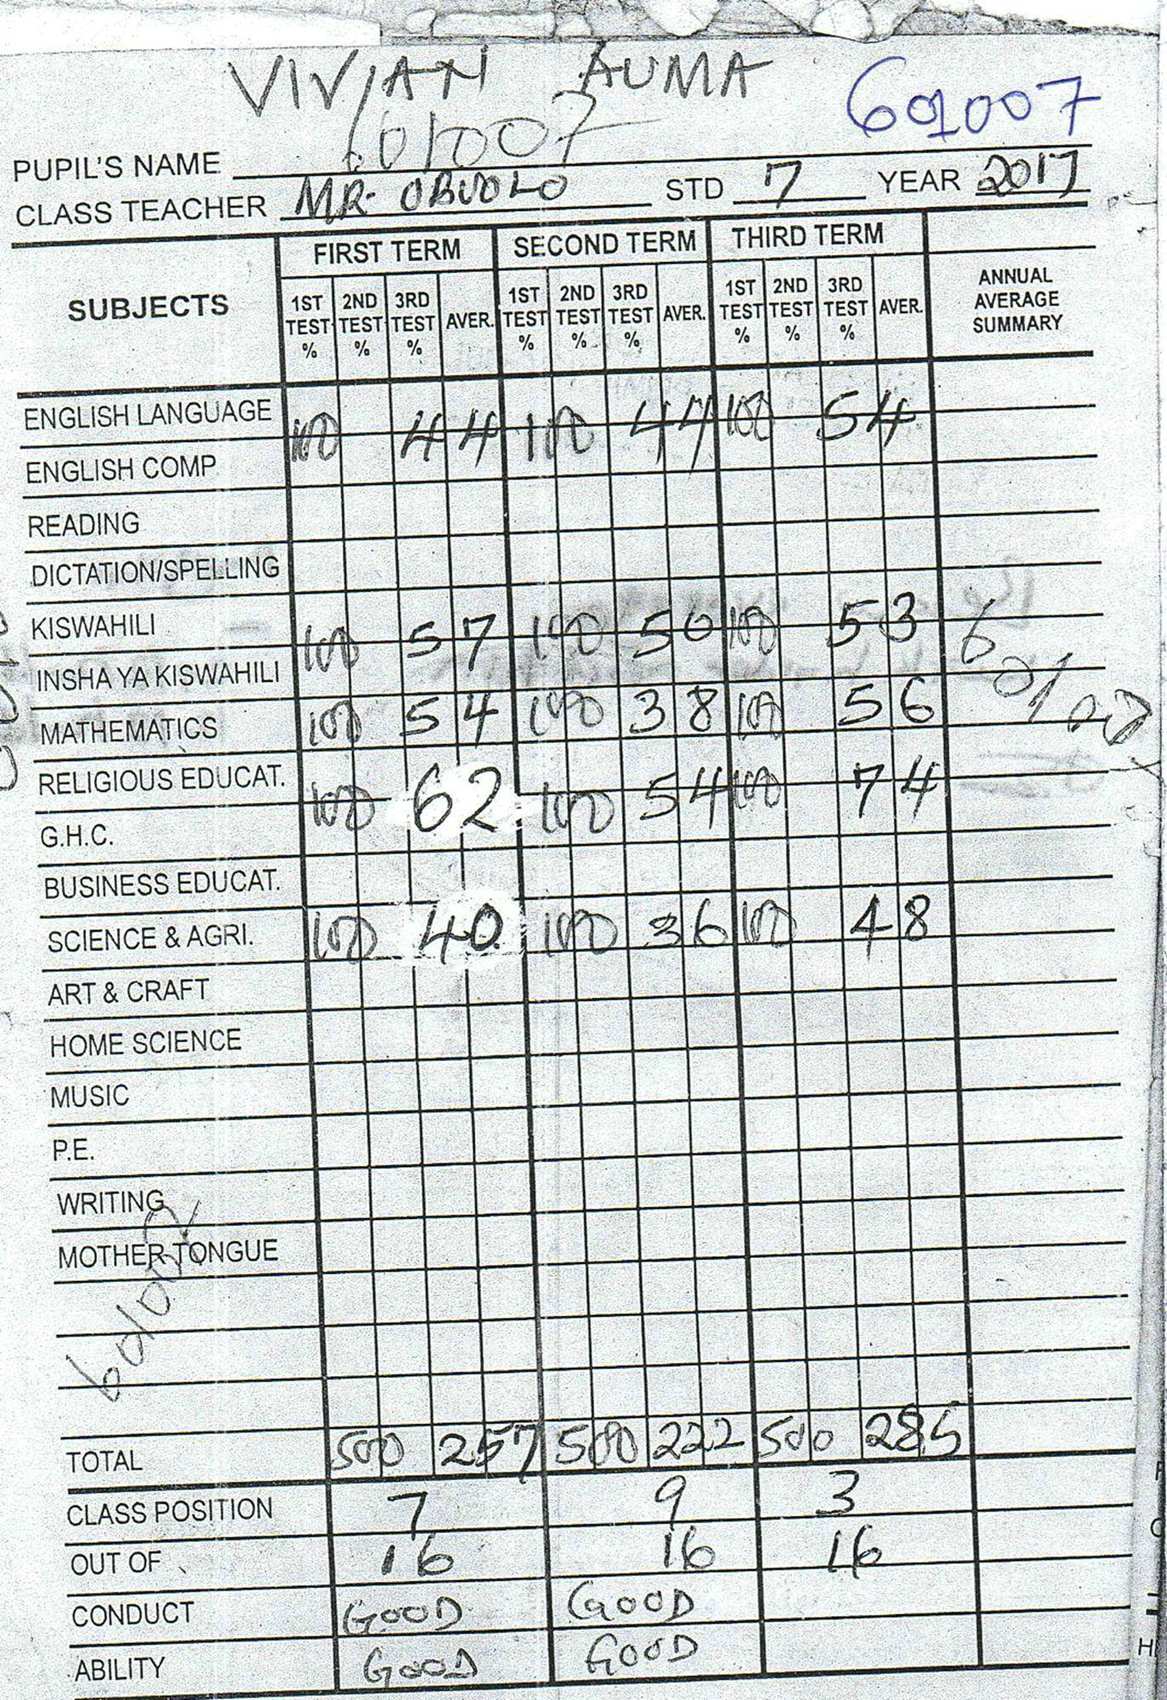 VIVIAN AUMA
601007 601007
PUPIL'S NAME
CLASS TEACHER MR. OBUOLO STD 7 YEAR 2017
SUBJECTS FIRST TERM SECOND TERM THIRD TERM ANNUAL AVERAGE SUMMARY
1ST TEST % 2ND TEST % 3RD TEST % AVER. 1ST TEST % 2ND TEST % 3RD TEST % AVER. 1ST TEST % 2ND TEST % 3RD TEST % AVER.
ENGLISH LANGUAGE 100 44 100 44 100 54
ENGLISH COMP
READING
DICTATION/SPELLING
KISWAHILI 100 57 100 50 100 53
INSHA YA KISWAHILI
MATHEMATICS 100 54 100 38 100 56
RELIGIOUS EDUCAT. 100 62 100 54 100 74
G.H.C.
BUSINESS EDUCAT.
SCIENCE & AGRI. 100 40 100 36 100 48
ART & CRAFT
HOME SCIENCE
MUSIC
P.E.
WRITING
MOTHER TONGUE
TOTAL 500 257 500 222 500 285
CLASS POSITION 7 9 3
OUT OF 16 16 16
CONDUCT GOOD GOOD
ABILITY GOOD GOOD